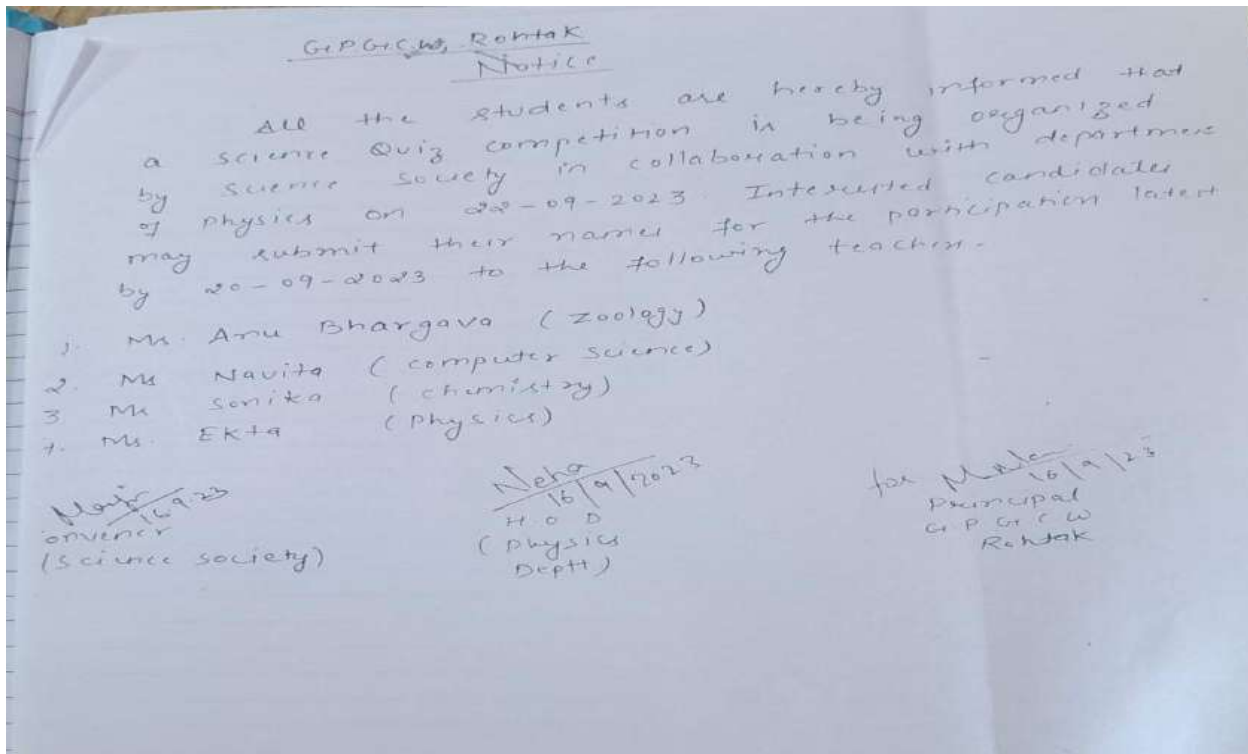 G.P.G.C.W, Rohtak
Notice
All the students are hereby informed that
a science Quiz competition is being organized
by science society in collaboration with department
of physics on 22-09-2023. Interested candidates
may submit their names for the participation latest
by 20-09-2023 to the following teachers.
1. Ms. Anu Bhargava (Zoology)
2. Ms Navita (computer science)
3 Ms Sonika (chemistry)
4. Ms. Ekta (Physics)
16.9.23
onvener
(Science society)
Neha
16/9/2023
H O D
(Physics
Deptt)
for
16/9/23
Principal
G P G C W
Rohtak